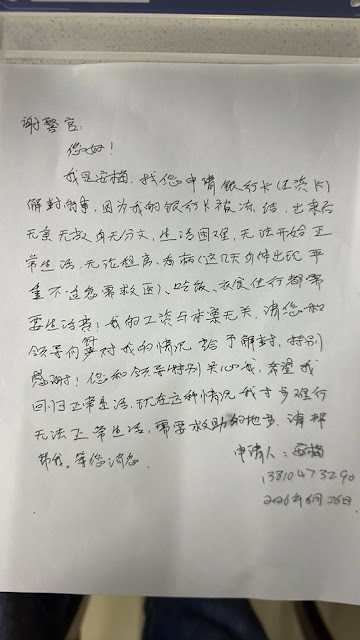 谢警官：
您好！
我是安梅，找您申请银行卡(工资卡)
解封的事，因为我的银行卡被冻结，出来后
无亲无故身无分文，生活困难，无法开始正
常生活，无论租房、看病(这几天身体出现严
重不适急需救医)、吃饭、衣食住行都需
要生活费！我的工资与本案无关，请您和
领导们针对我的情况给予解封，特别
感谢！您和领导特别关心我，希望我
回归正常生活，现在这种情况我寸步难行
无法正常生活，需要救助的地步，请帮
帮我。等您消息.
申请人：安梅
13810473290
2026年6月26日